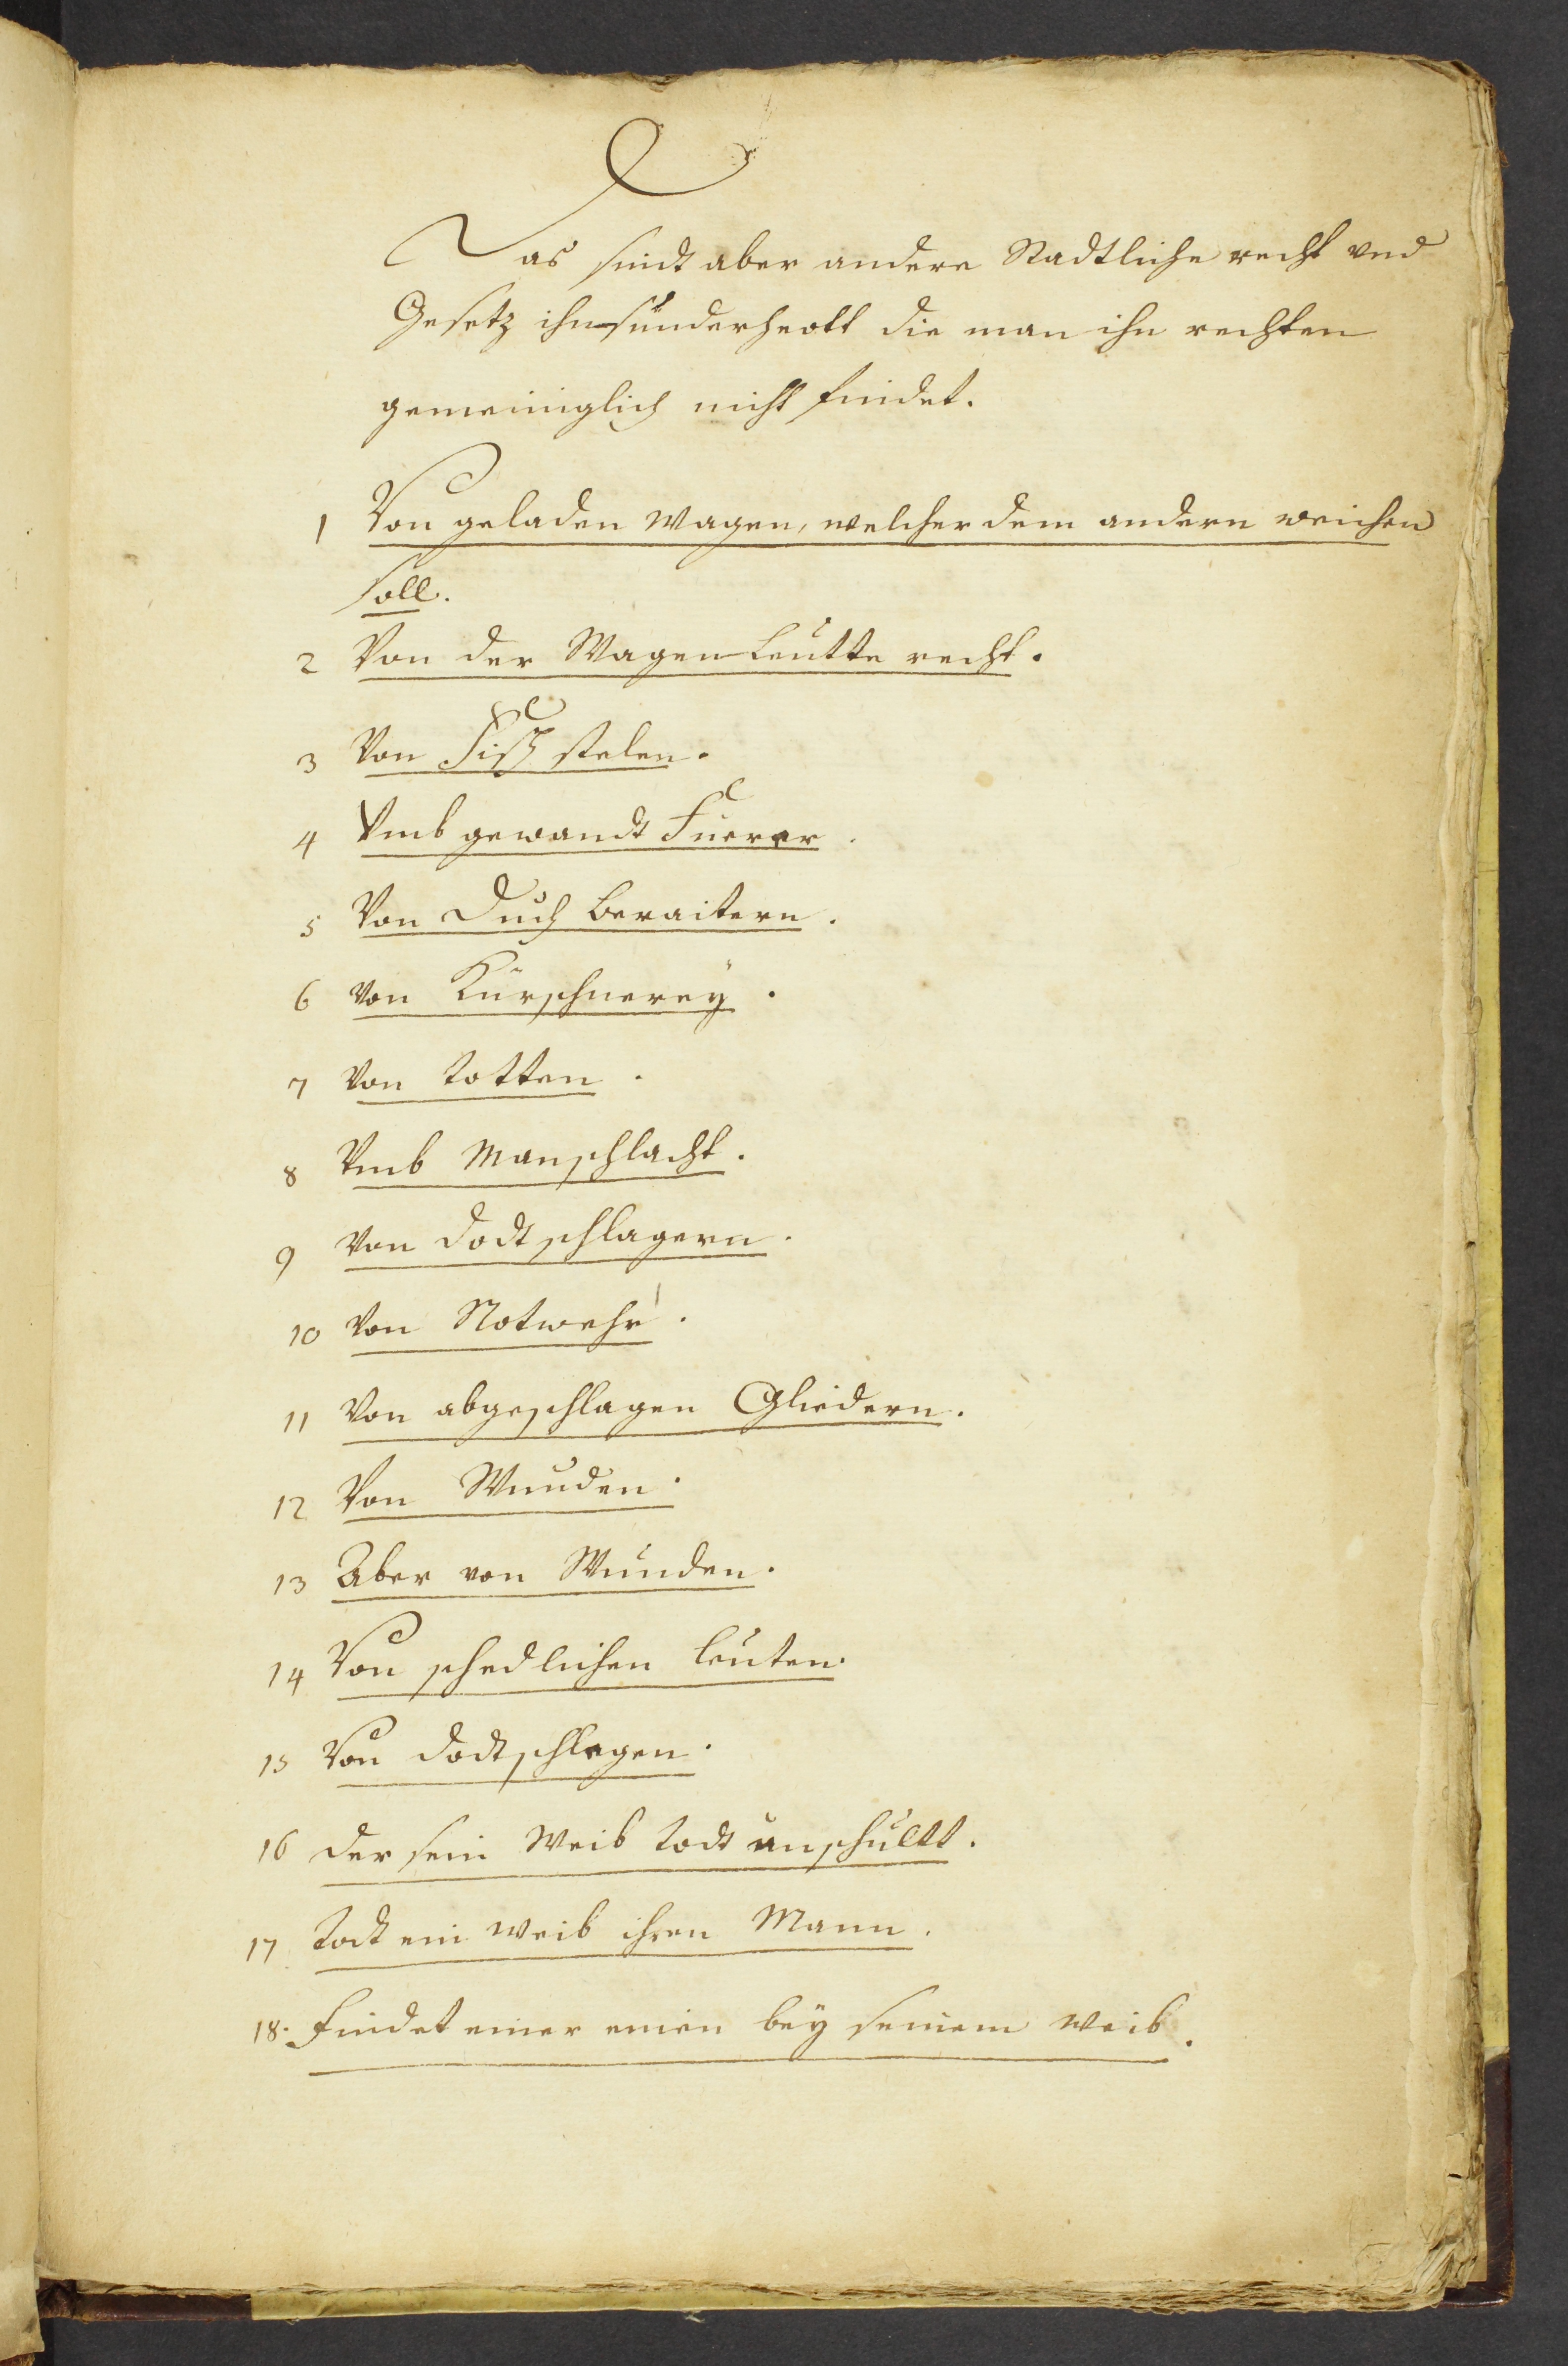 Das sindt aber andere Stadtliche recht vnd
Gesetz ihn sünderheott die man ihn rechten
gemeiniglich nicht findet.
1 Von geladen Wagen, welcher dem andern weichen
soll.
2 Von der Wagen Leütte recht.
3 Von Fisch stelen.
4 Vmb gewandt Fuerer.
5 Von Duch beraitern.
6 Von Kürschnerey.
7 Von totten.
8 Vmb Manschlacht.
9 Von dodt schlagern.
10 Von Notwehr.
11 Von abgeschlagen Gliedern.
12 Von Wunden.
13 Aber von Wunden.
14 Von schedlichen leüten.
15 Von dodtschlegen.
16 der sein Weib todt unschultt.
17 Todt ein Weib ihren Mann.
18. findet einer einen bey seinem Weib.